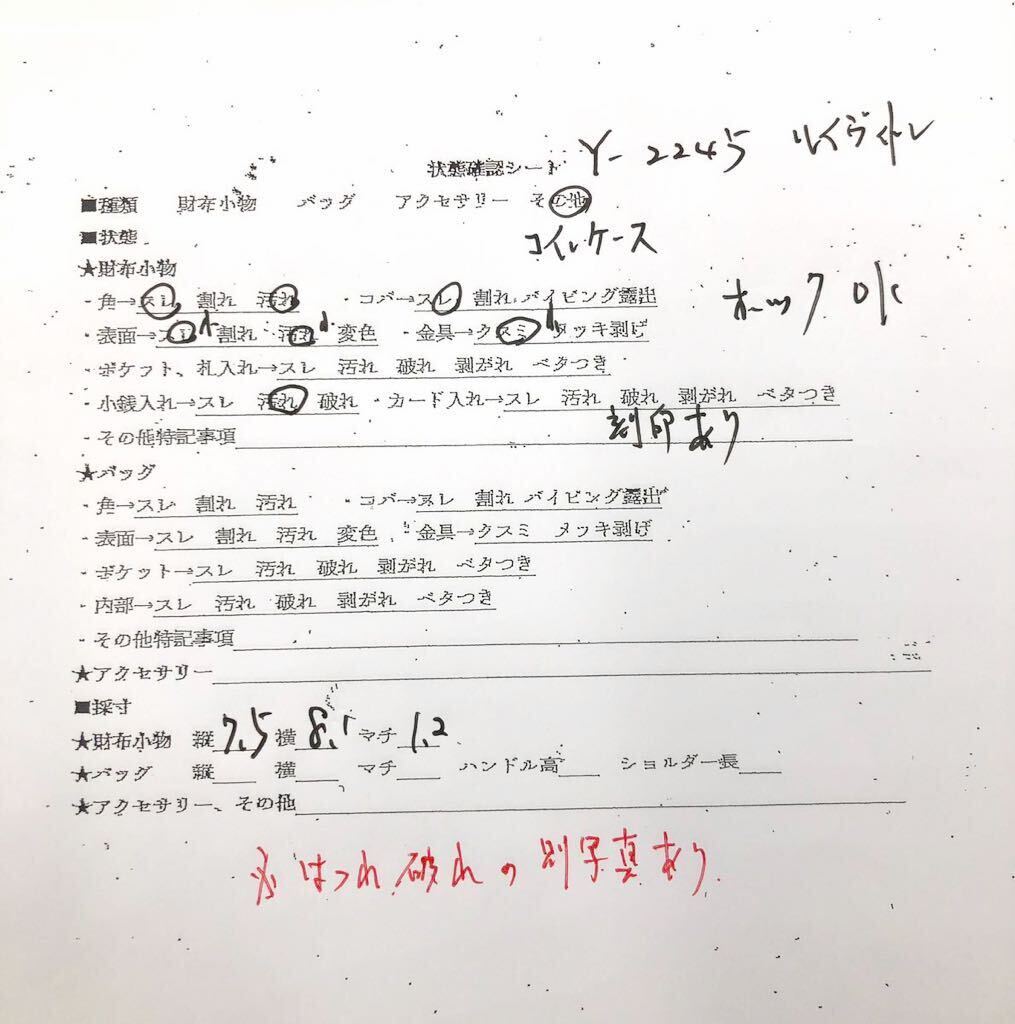 状態確認シート Y-2245 ルイヴィトン
■種類 財布小物 バッグ アクセサリー その他
■状態 コインケース
★財布小物
・角→スレ 割れ 汚れ ・コバ→スレ 割れ パイピング露出 ホック OK
・表面→スレ 割れ 汚れ 変色 ・金具→クスミ メッキ剥げ
・ポケット、札入れ→スレ 汚れ 破れ 剥がれ ベタつき
・小銭入れ→スレ 汚れ 破れ ・カード入れ→スレ 汚れ 破れ 剥がれ ベタつき
・その他特記事項 刻印あり
★バッグ
・角→スレ 割れ 汚れ ・コバ→スレ 割れ パイピング露出
・表面→スレ 割れ 汚れ 変色 ・金具→クスミ メッキ剥げ
・ポケット→スレ 汚れ 破れ 剥がれ ベタつき
・内部→スレ 汚れ 破れ 剥がれ ベタつき
・その他特記事項
★アクセサリー
■採寸
★財布小物 縦 7.5 横 8.1 マチ 1.2
★バッグ 縦 横 マチ ハンドル高 ショルダー長
★アクセサリー、その他
※ほつれ 破れの別写真あり